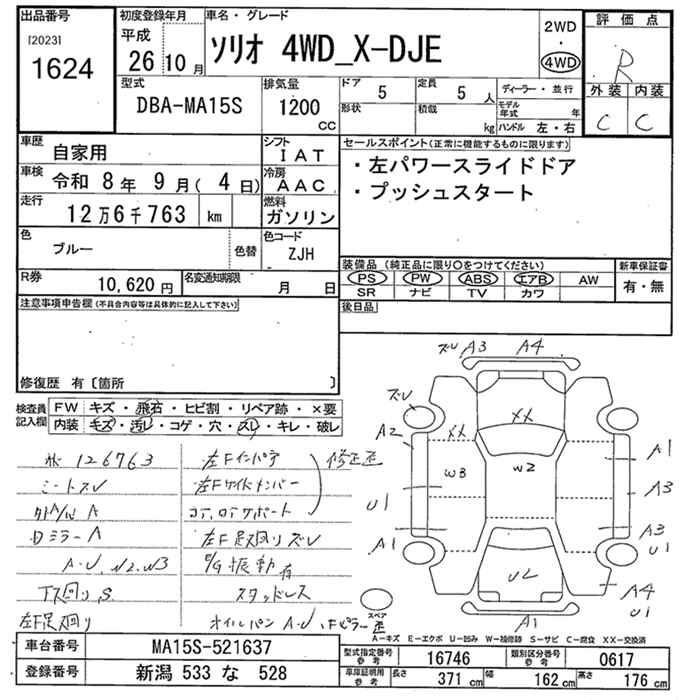 出品番号
[2023]
1624
初度登録年月
平成
26 10 月
車名・グレード
ソリオ 4WD_X-DJE
2WD
・
4WD
評価点
R
外装 内装
C C
型式
DBA-MA15S
排気量
1200 CC
ドア 5
定員 5 人
形状
積載 kg
ディーラー・並行
モデル年式 年
ハンドル 左・右
車歴 自家用
シフト IAT
車検 令和 8年 9月( 4日)
冷房 AAC
走行 12万6千763 km
燃料 ガソリン
色 ブルー 色替
色コード ZJH
R券 10,620 円
名変通知期限 月 日
セールスポイント(正常に機能するものに限ります)
・左パワースライドドア
・プッシュスタート
装備品(純正品に限り○をつけてください)
PS PW ABS エアB AW
SR ナビ TV カワ
新車保証書
有・無
後日品
注意事項申告欄(不具合内容等は具体的に記入して下さい)
修復歴 有〔箇所 〕
検査員記入欄
FW キズ・飛石・ヒビ割・リペア跡・×要
内装 キズ・汚レ・コゲ・穴・スレ・キレ・破レ
126763
左Fインパネ
修正歪
シートスレ
左Fサイドメンバー
コアロアサポート
ミラーA
左F足廻りズレ
A・U, W2, W3
振動有
下廻りS
スタッドレス
左F足廻り
オイルパン A・U
Fピラー歪
ズレ A3 A4
ズレ
A2
XX
XX
A1
W3
W2
U1
A3
A1
A3
U1
U2
A4
U1
A1
スペア
A-キズ E-エクボ U-凹み W-補修跡 S-サビ C-腐食 XX-交換済
車台番号 MA15S-521637
登録番号 新潟 533 な 528
型式指定番号 参考 16746
類別区分番号 参考 0617
車庫証明用 参考 長さ 371 cm 幅 162 cm 高さ 176 cm